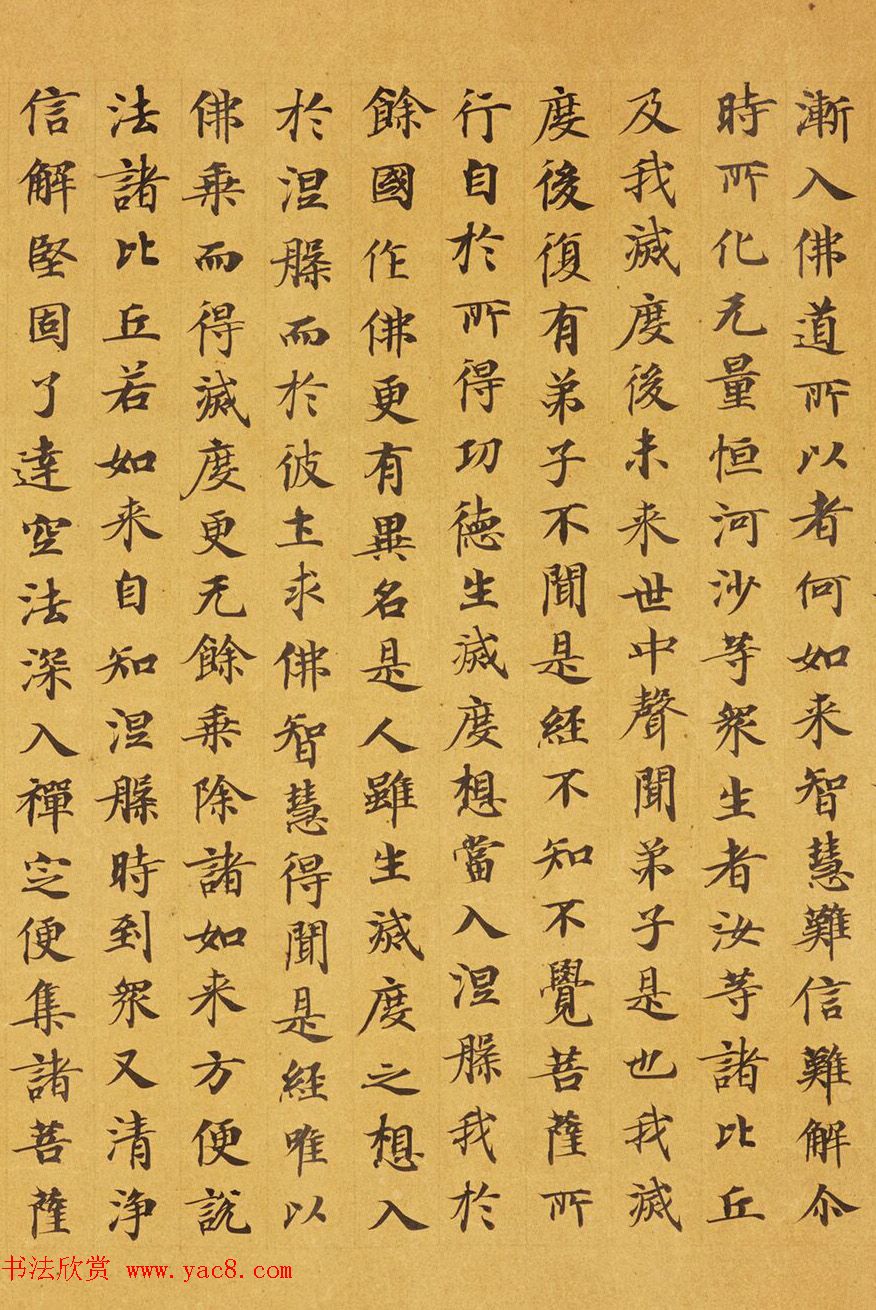 漸入佛道所以者何如来智慧難信難解尒
時所化无量恒河沙等衆生者汝等諸比丘
及我滅度後未来世中聲聞弟子是也我滅
度後復有弟子不聞是經不知不覺菩薩所
行自於所得功德生滅度想當入涅槃我於
餘國作佛更有異名是人雖生滅度之想入
於涅槃而於彼土求佛智慧得聞是經唯以
佛乗而得滅度更无餘乗除諸如来方便說
法諸比丘若如来自知涅槃時到衆又清浄
信解堅固了達空法深入禪定便集諸菩薩
书法欣赏 www.yac8.com